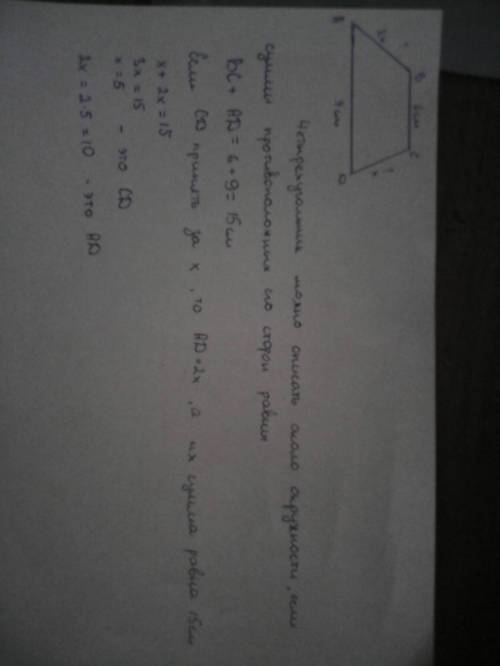 B 6 см C
2x ? ? x
A 9 см D
Четырехугольник можно описать около окружности, если
суммы противоположных его сторон равны
BC + AD = 6 + 9 = 15 см
Если CD принять за x, то AD = 2x, а их сумма равна 15 см
x + 2x = 15
3x = 15
x = 5 - это CD
2x = 2·5 = 10 - это AD